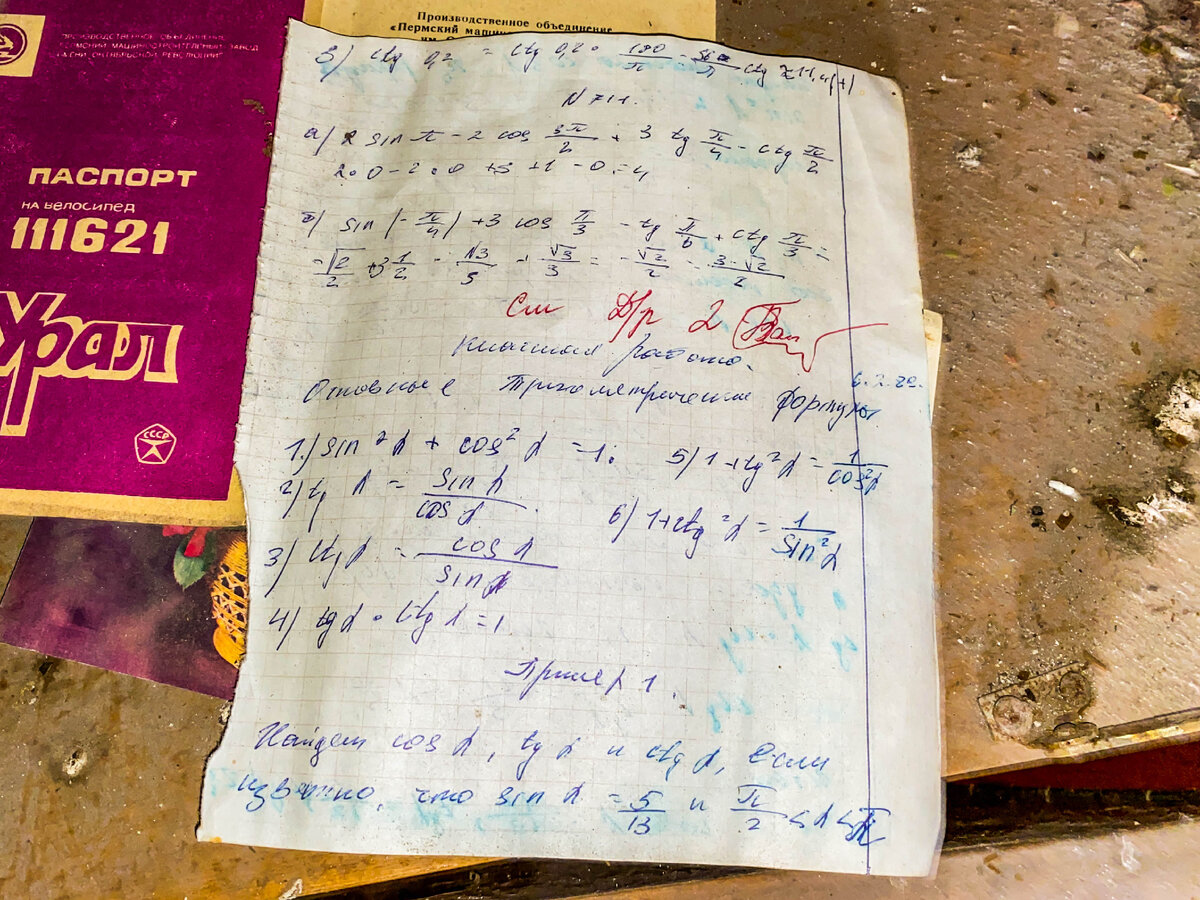 ПРОИЗВОДСТВЕННОЕ ОБЪЕДИНЕНИЕ
ПЕРМСКИЙ МАШИНОСТРОИТЕЛЬНЫЙ ЗАВОД
ОКТЯБРЬСКОЙ РЕВОЛЮЦИИ"
ПАСПОРТ
НА ВЕЛОСИПЕД
111621
Урал
СССР
Производственное объединение
«Пермский
3) ctg 0,2 = ctg 0,2 · 180/π = 36/π ctg
N 711.
а) 2 sin π - 2 cos 3π/2 + 3 tg π/4 - ctg π/2
2·0 - 2·0 + 3 + 1 - 0 = 4
б) sin (-π/4) + 3 cos π/3 - tg π/6 + ctg π/3 =
-√2/2 + 3 1/2 - √3/3 + √3/3 = -√2/2 - 3-√2/2
См Д/р 2
Классная работа.
6.2.82.
Основные тригометрические формулы
1.) sin² α + cos² α = 1.
5) 1 + tg² α = 1/cos² α
2) tg α = sin α/cos α.
6) 1 + ctg² α = 1/sin² α
3) ctg α = cos α/sin α
4) tg α · ctg α = 1
Пример 1.
Найдем cos α, tg α и ctg α, если
известно, что sin α = 5/13 и π/2 < α < π